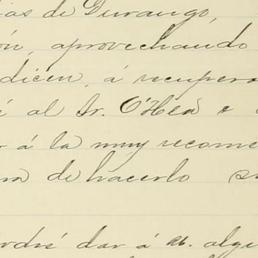 ias de Durango,
ón, aprovechando
dicen, á recupera
é al Sr. O'Hea e
r á la muy recome
de hacerlo
dré dar á alg